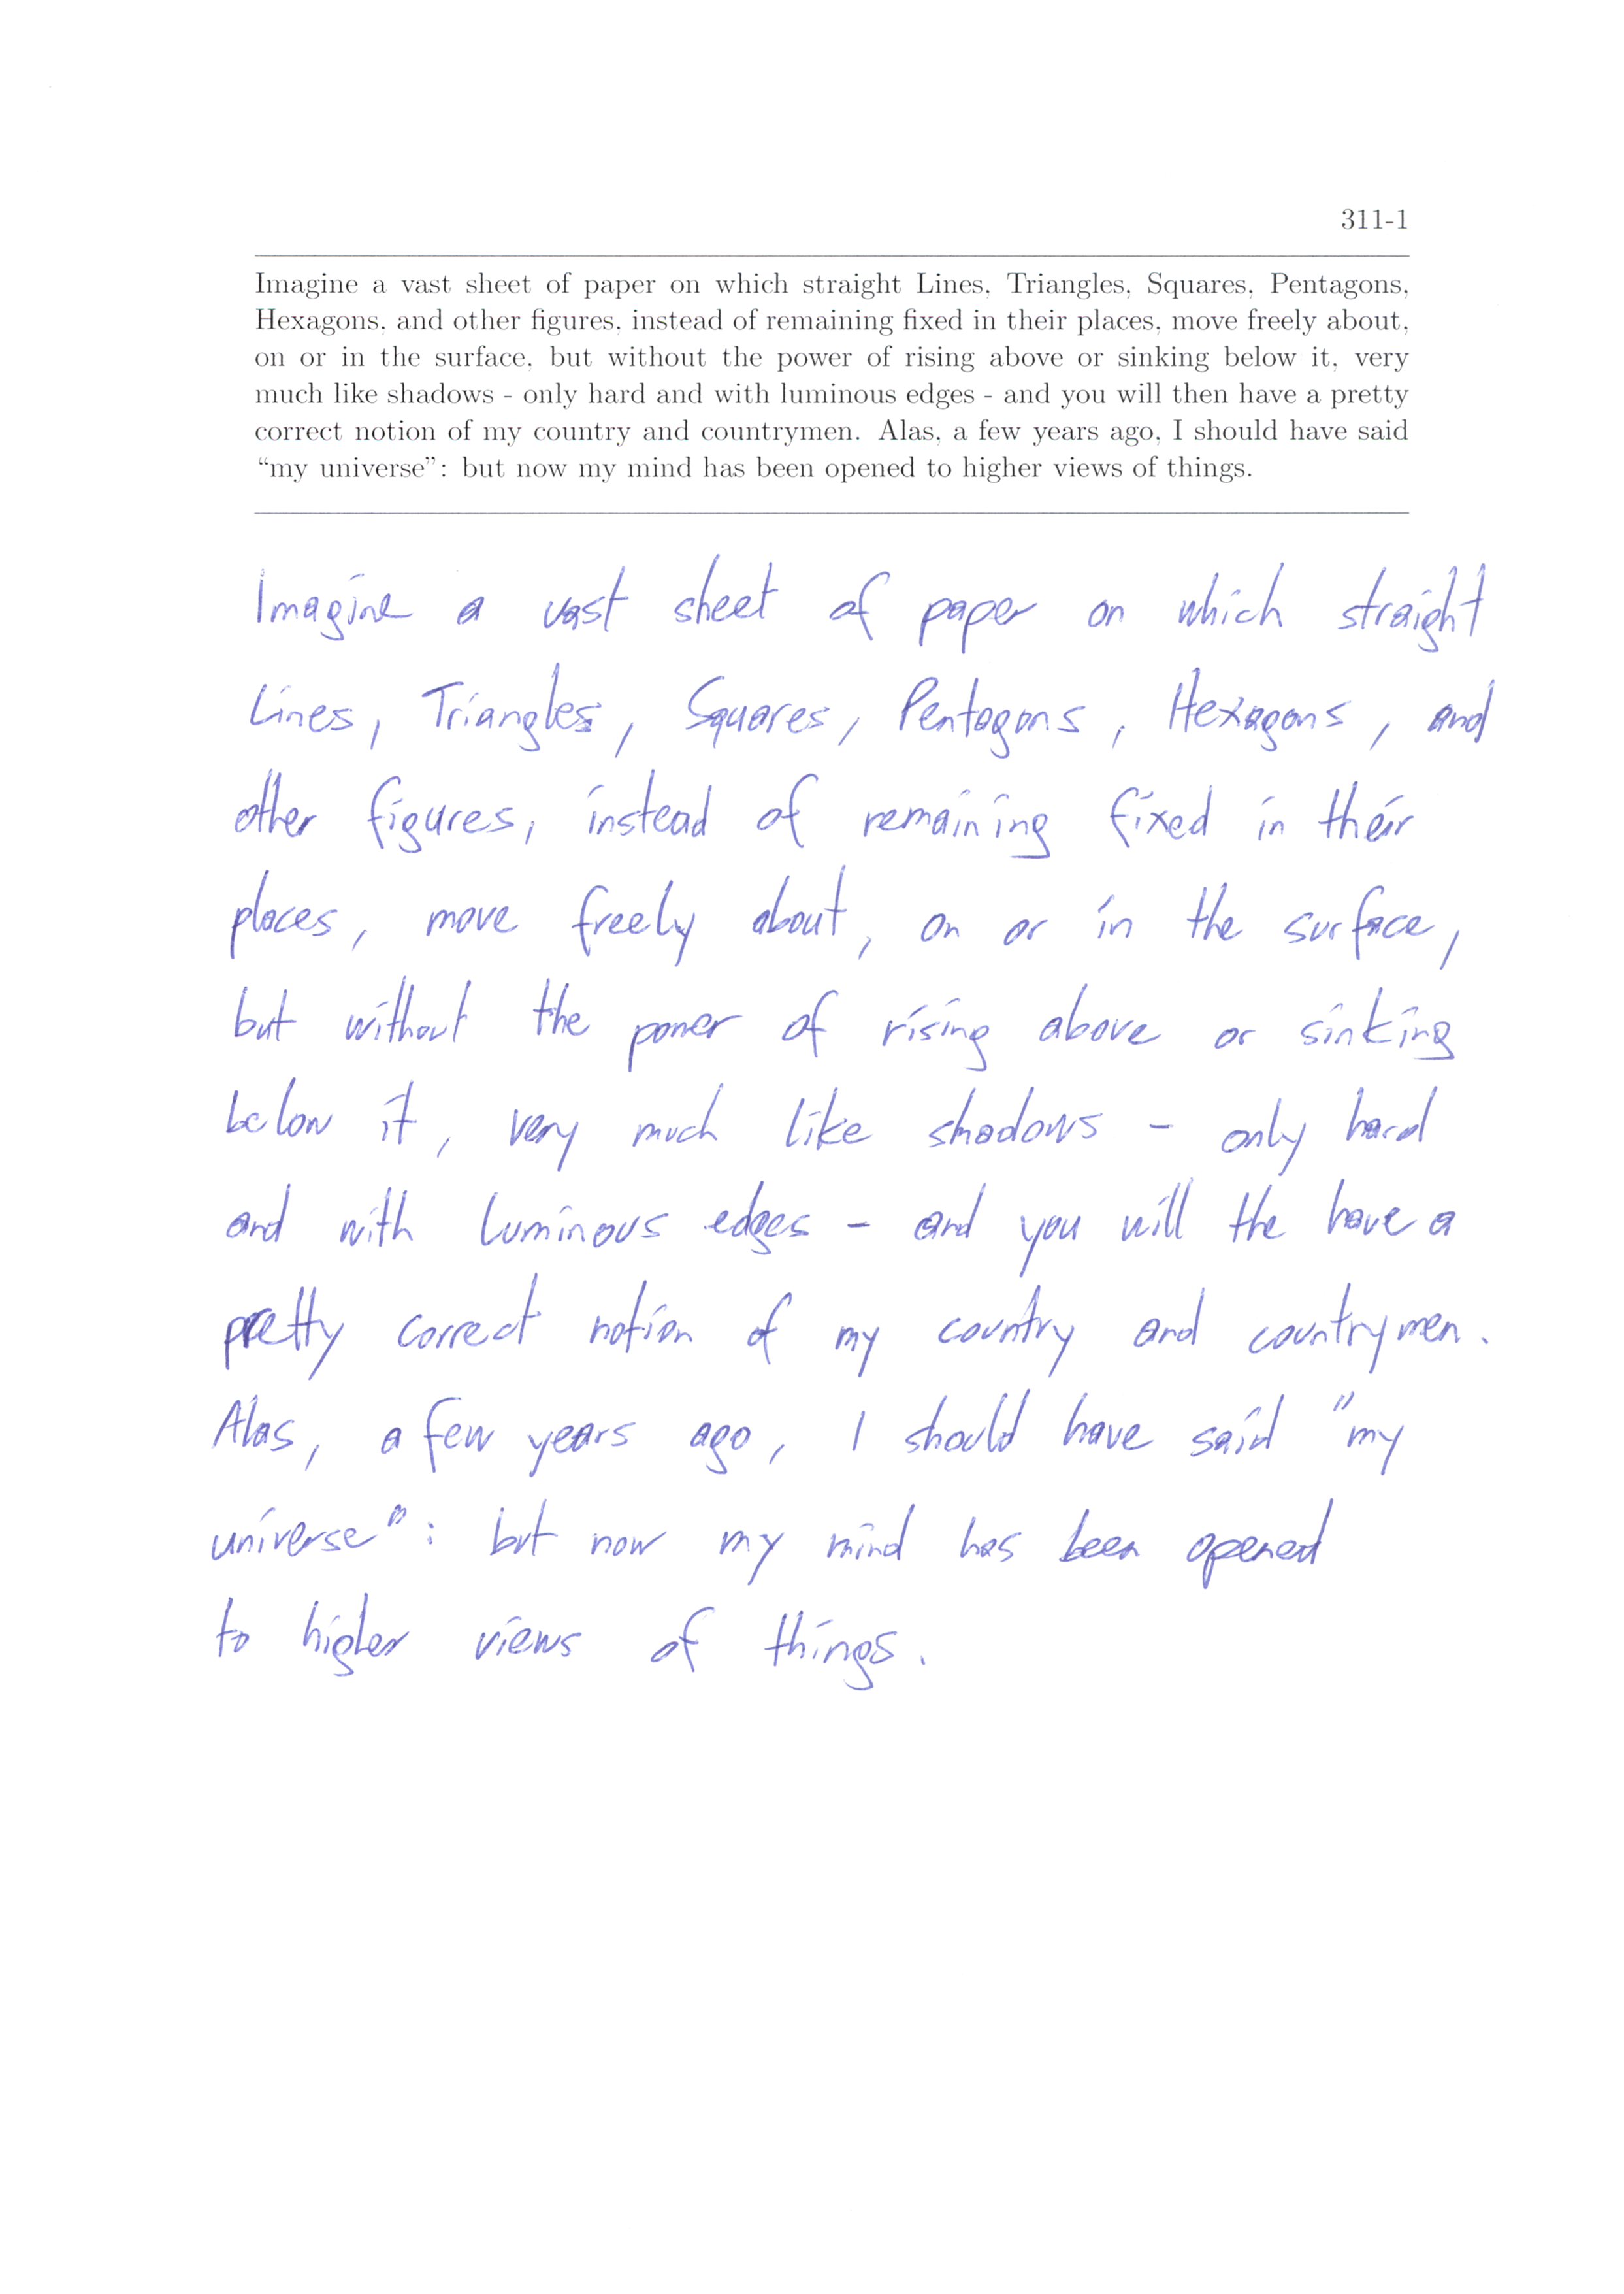 311-1
Imagine a vast sheet of paper on which straight Lines, Triangles, Squares, Pentagons,
Hexagons, and other figures, instead of remaining fixed in their places, move freely about,
on or in the surface, but without the power of rising above or sinking below it, very
much like shadows - only hard and with luminous edges - and you will then have a pretty
correct notion of my country and countrymen. Alas, a few years ago, I should have said
“my universe”: but now my mind has been opened to higher views of things.
Imagine a vast sheet of paper on which straight
Lines, Triangles, Squares, Pentagons, Hexagons, and
other figures, instead of remaining fixed in their
places, move freely about, on or in the surface,
but without the power of rising above or sinking
below it, very much like shadows - only hard
and with luminous edges - and you will the have a
pretty correct notion of my country and countrymen.
Alas, a few years ago, I should have said "my
universe": but now my mind has been opened
to higher views of things.